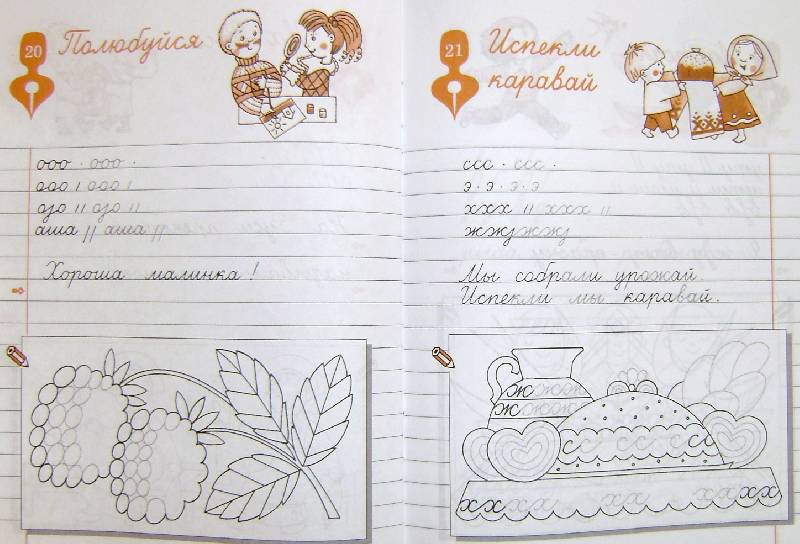 20 Полюбуйся
ооо · ооо ·
ооо ı ооо ı
озо ıı озо ıı
аша ȷȷ аша ȷȷ
Хороша малинка!
21 Испекли
каравай
ссс · ссс ·
э · э · э · э
ххх ıı ххх ıı
жжjжжj
Мы собрали урожай.
Испекли мы каравай.
жжжж
жжжж
сссс сс сс
хххх хх хххх